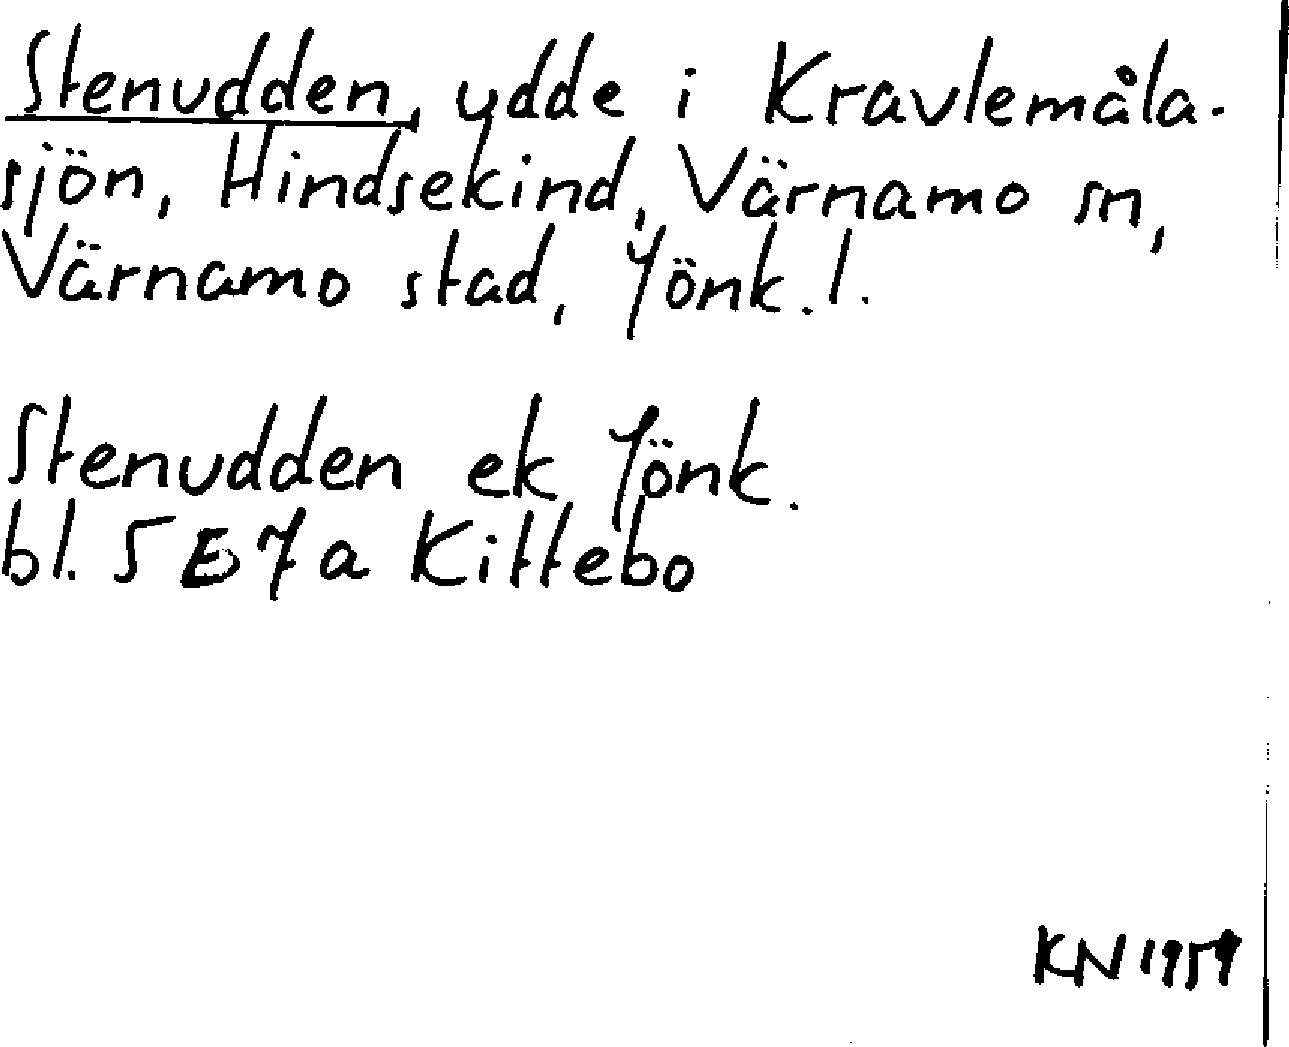 Stenudden, udde i Kravlemåla-
sjön, Hindsekind, Värnamo sn,
Värnamo stad, Jönk. l.
Stenudden ek Jönk.
bl. 5E7a Kittebo
KN 1959